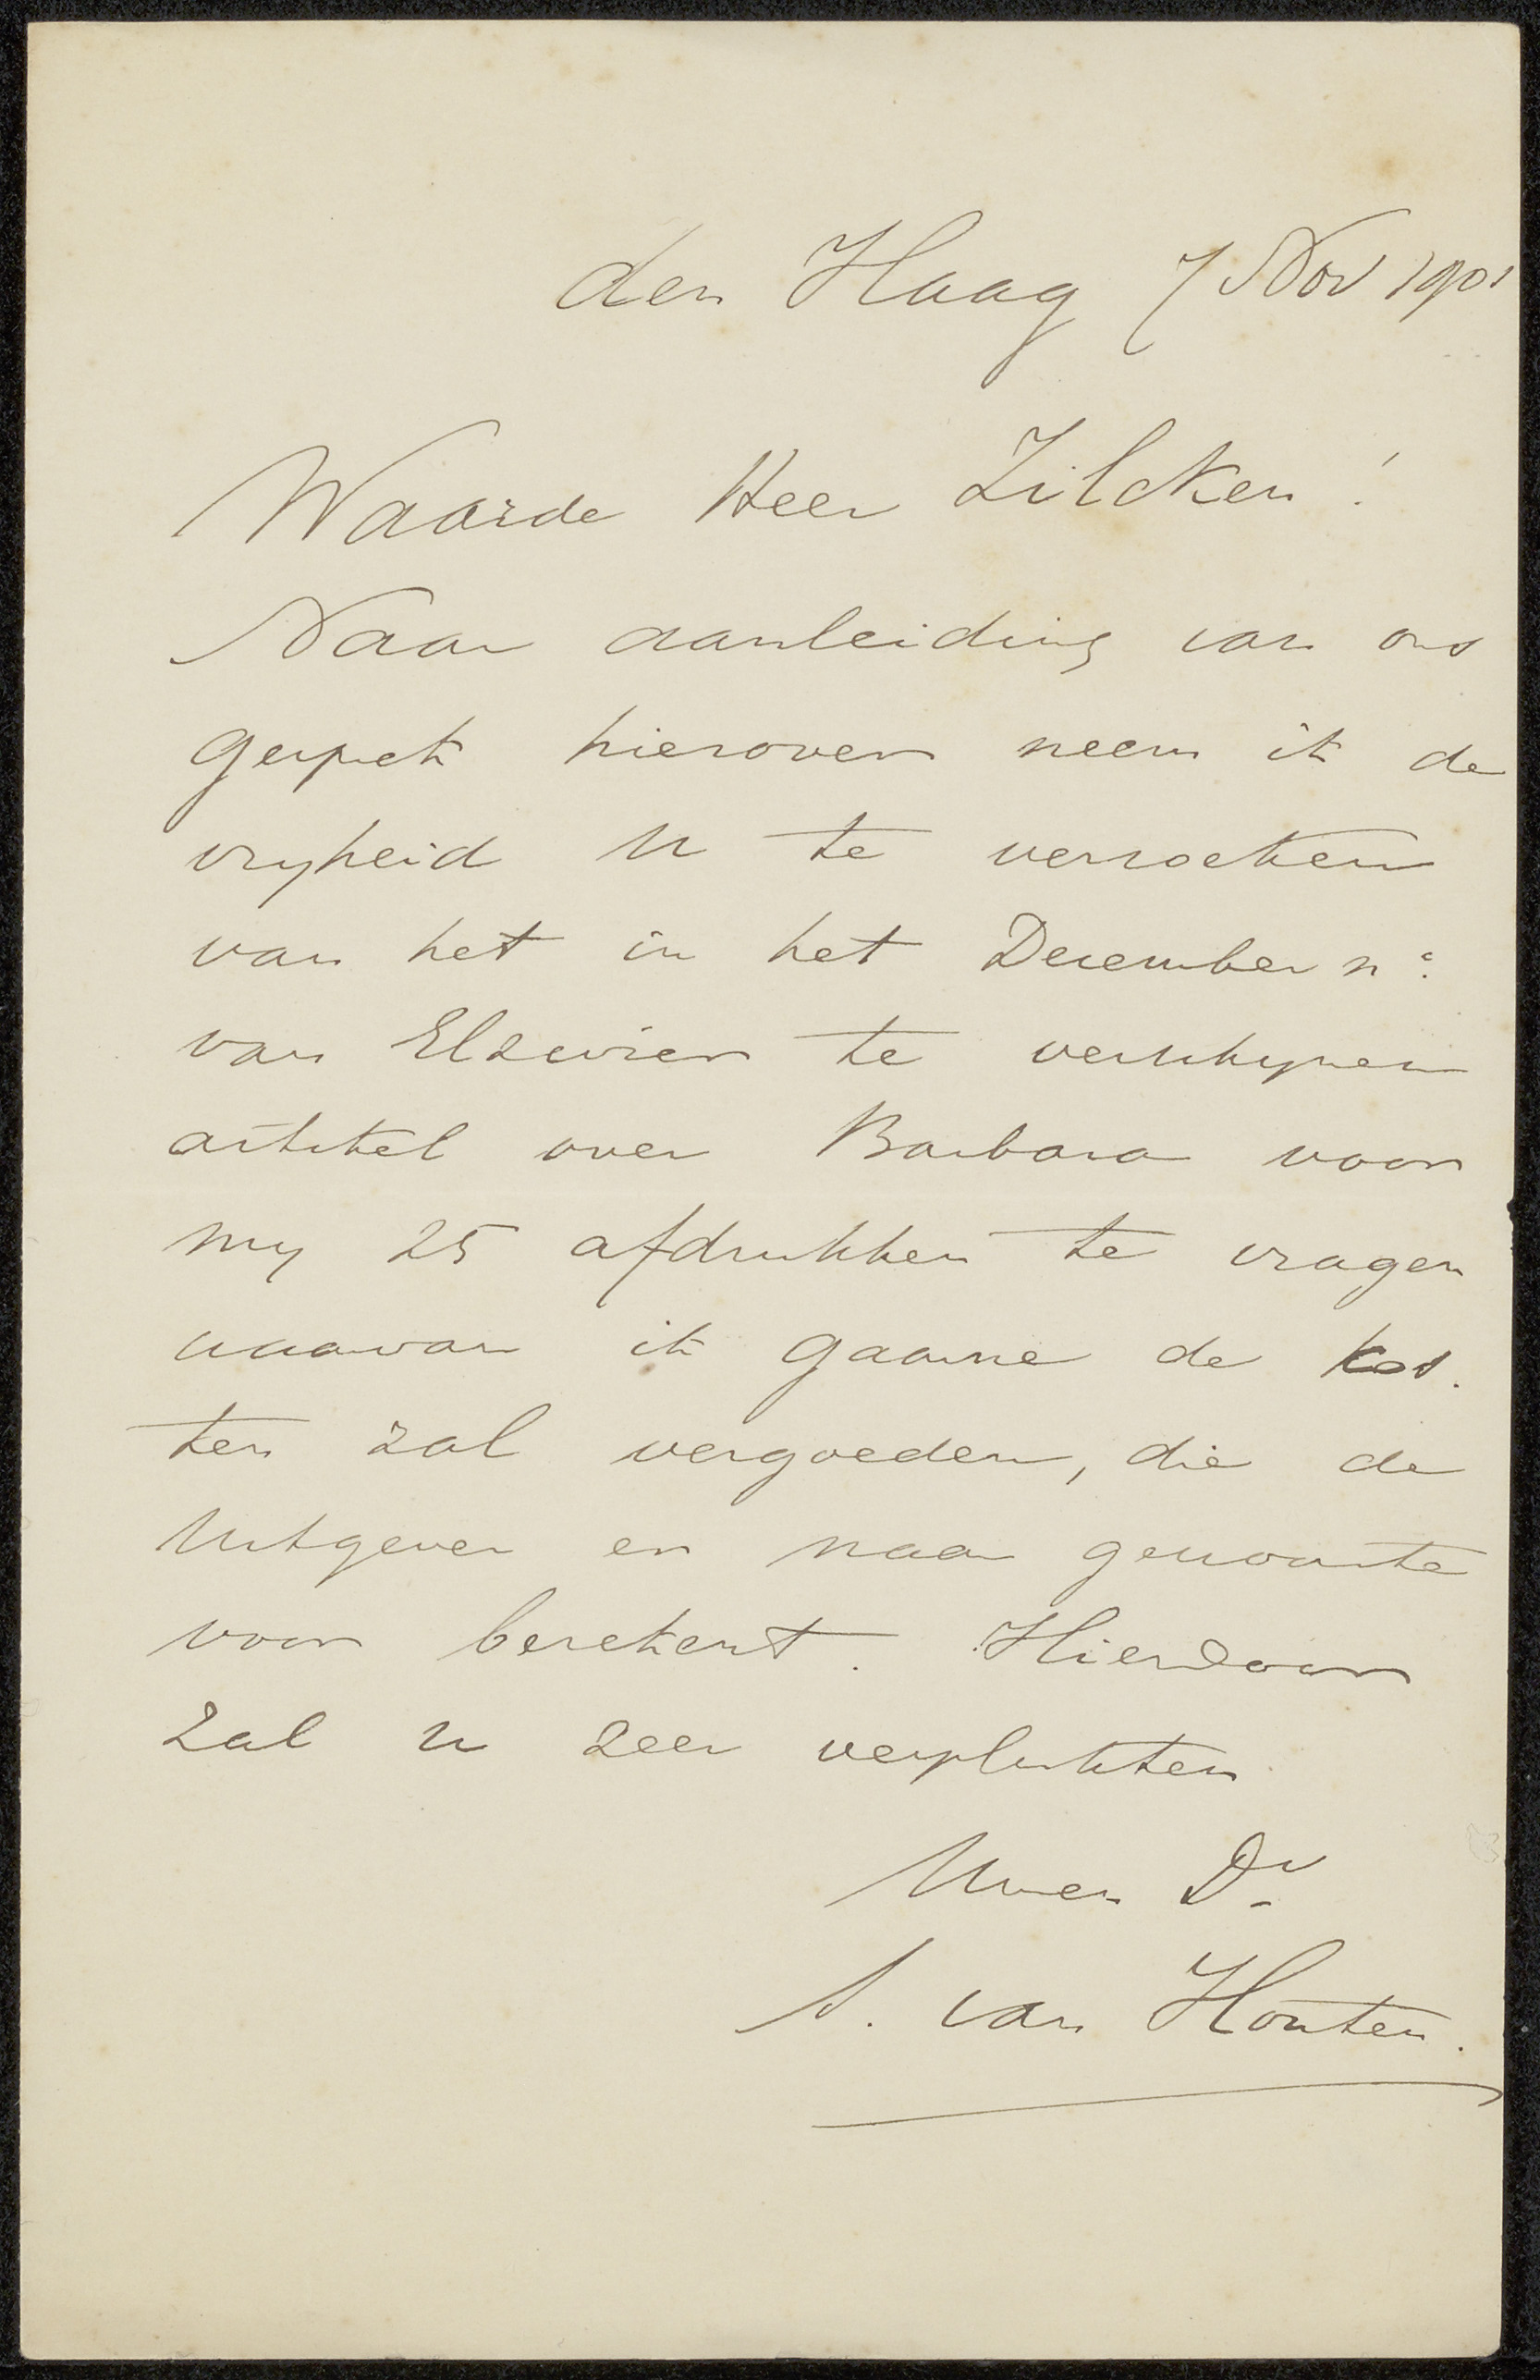 den Haag 7 Nov 1901
Waarde Heer Zilcken!
Naar aanleiding van ons
gesprek hierover neem ik de
vryheid U te verzoeken
van het in het December no:
van Elsevier te verschynen
artikel over Barbara voor
my 25 afdrukken te vragen
waarvan ik gaarne de kos.
ten zal vergoeden, die de
Uitgever er naar gewoonte
voor berekent. Hierdoor
zal u zeer verplichten
Uwen Dr
S. van Houten.